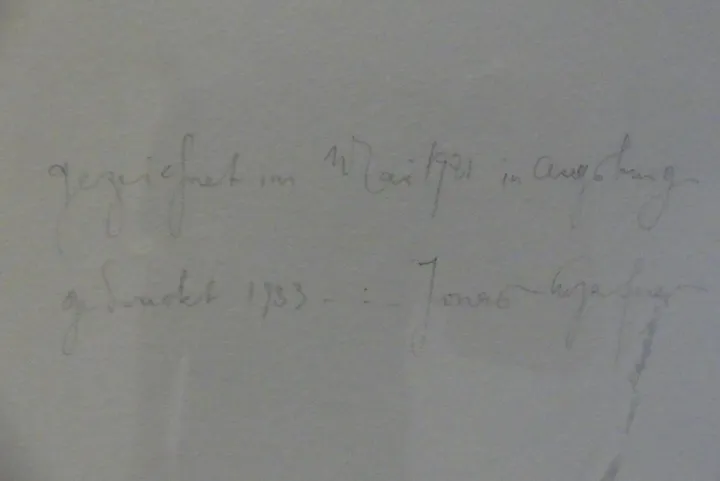 gezeichnet im Mai 1981 in Augsburg
gedruckt 1983 - : - Jonas